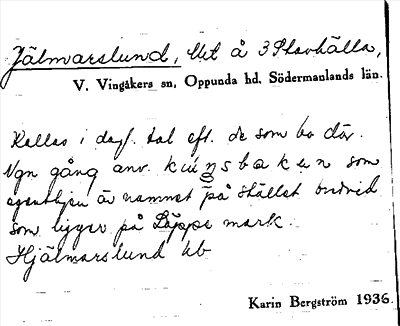 Jälmarslund, lht å 3 Stavhälla,
V. Vingåkers sn, Oppunda hd, Södermanlands län.
Kallas i dagl. tal eft. de som bo där.
Ngn gång anv. kungsbakun som
egentligen är namnet på stället bredvid
som ligger på Läppe mark.
Hjälmarslund kb
Karin Bergström 1936.